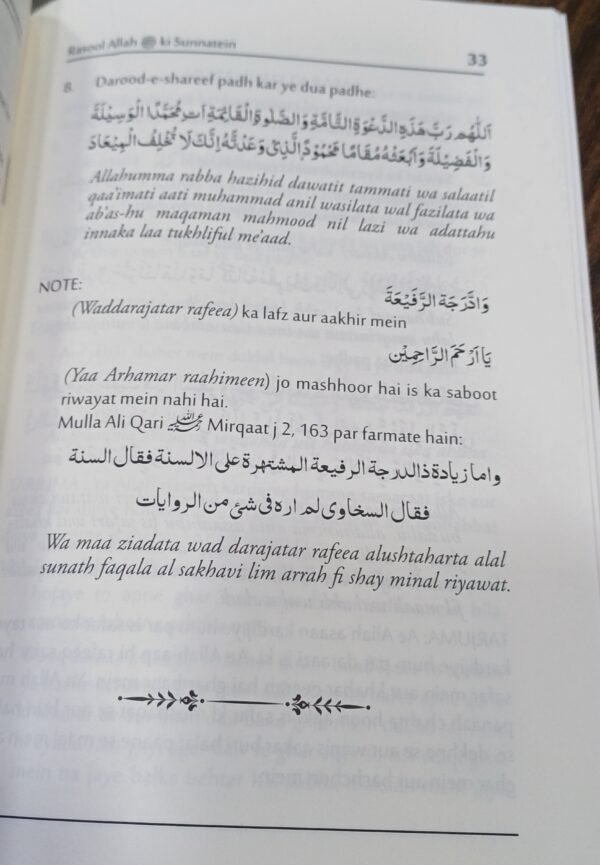 Rasool Allah ﷺ ki Sunnatein 33
8. Darood-e-shareef padh kar ye dua padhe:
اَللّٰهُمَّ رَبَّ هٰذِهِ الدَّعْوَةِ التَّامَّةِ وَالصَّلٰوةِ الْقَائِمَةِ اٰتِ مُحَمَّدَا الْوَسِيْلَةَ
وَالْفَضِيْلَةَ وَابْعَثْهُ مَقَامًا مَّحْمُوْدَ ِالَّذِىْ وَعَدْتَّهٗ اِنَّكَ لَا تُخْلِفُ الْمِيْعَادَ
Allahumma rabba hazihid dawatit tammati wa salaatil
qaa'imati aati muhammad anil wasilata wal fazilata wa
ab'as-hu maqaman mahmood nil lazi wa adattahu
innaka laa tukhliful me'aad.
NOTE: وَالدَّرَجَةَ الرَّفِيْعَةَ
(Waddarajatar rafeea) ka lafz aur aakhir mein
يَا اَرْحَمَ الرَّاحِمِيْنَ
(Yaa Arhamar raahimeen) jo mashhoor hai is ka saboot
riwayat mein nahi hai.
Mulla Ali Qari Mirqaat j 2, 163 par farmate hain:
واما زيادة ذالدرجة الرفيعة المشتهرة على الالسنة فقال السنة
فقال السخاوى لم اره فى شئ من الروايات
Wa maa ziadata wad darajatar rafeea alushtaharta alal
sunath faqala al sakhavi lim arrah fi shay minal riyawat.